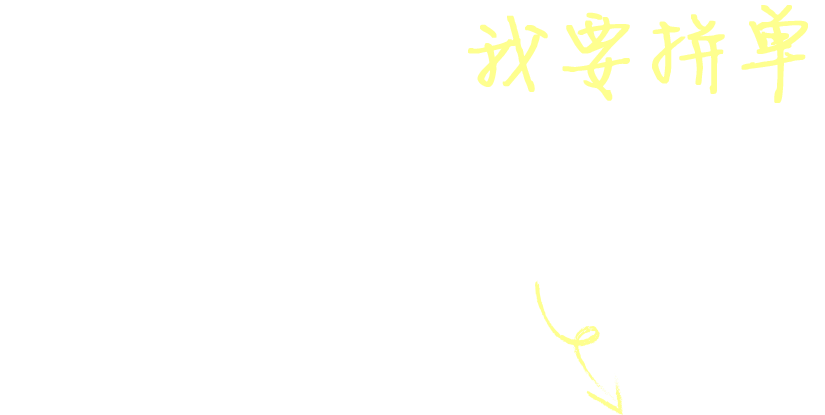 我要拼单